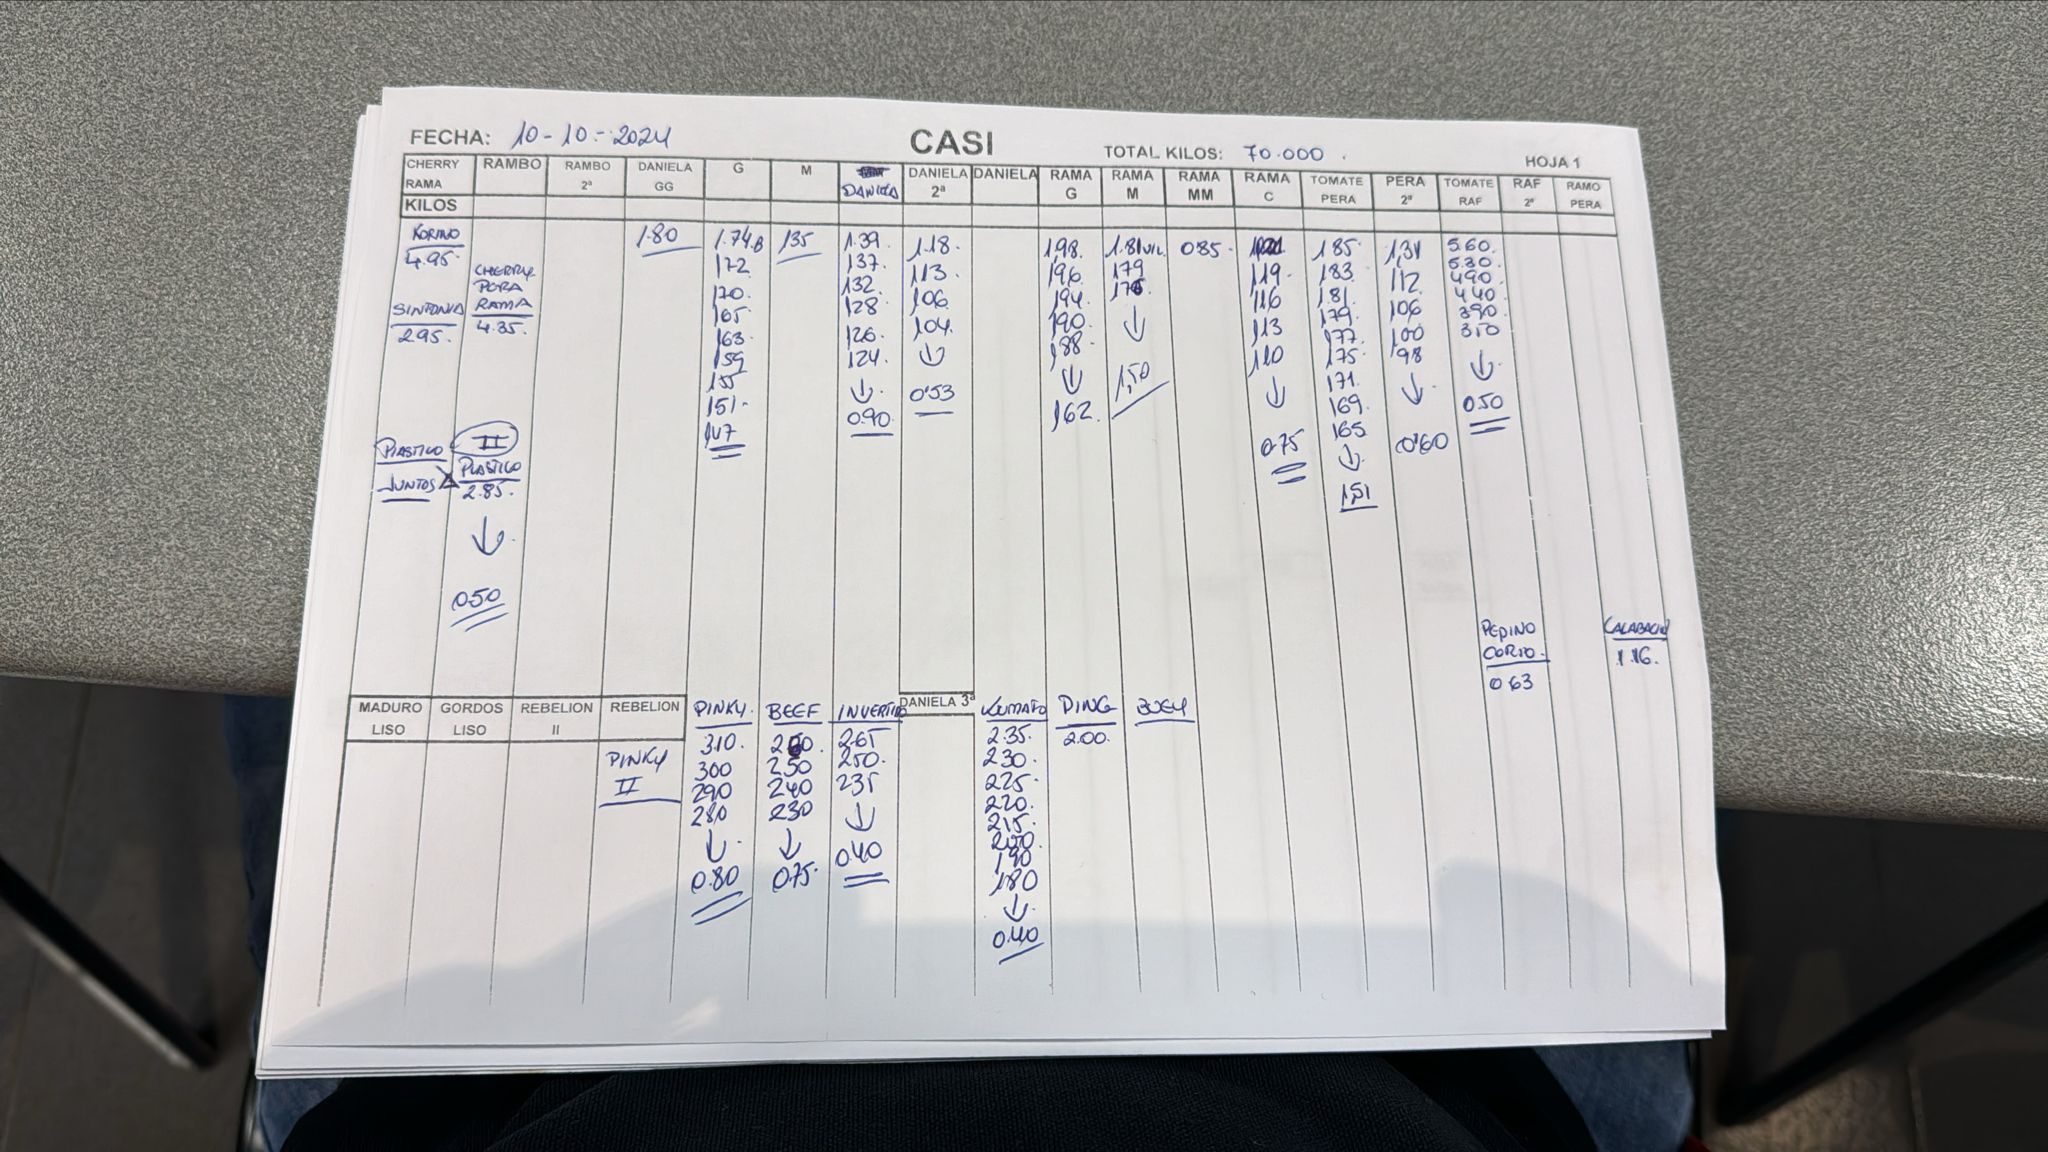 FECHA: 10-10-2024 CASI TOTAL KILOS: 70.000. HOJA 1
CHERRY RAMBO RAMBO DANIELA G M DANIELA DANIELA DANIELA RAMA RAMA RAMA RAMA TOMATE PERA TOMATE RAF RAMO
RAMA 2ª GG 2ª G M MM C PERA 2ª RAF 2ª PERA
KILOS
KORINO
4.95
SINTONIA
295.
CHERRY
PERA
RAMA
4.35.
PLASTICO
JUNTOS
II
PLASTICO
2.85.
↓
0.50
1.80
1.74B
172
170.
165
163
159
155
151-
147
135
1.39.
137.
132.
128.
126.
124.
↓
0.90.
1.18.
113.
106.
104.
↓
0'53
1,98.
196.
194.
190.
188.
↓
162.
1.81
179
↓
1,50
0.85.
119.
116
113
110
↓
0.75
1.85.
183.
181.
179.
177.
175.
171.
169.
165
↓
1,51
1,31
112
106
100
98
↓
0'60
5.60.
530.
490.
440.
390.
350
↓
0.50
PEPINO
CORTO.
0.63
CALABACIN
1.16.
MADURO GORDOS REBELION REBELION DANIELA 3ª
LISO LISO II
PINKY
II
PINKY.
310.
300
290
280
↓
0.80
BEEF
250
240
230
↓
0.75.
INVERTIDO
2.65
250.
235
↓
0.40
KUMATO
2.35.
230.
225.
220.
215.
200.
190
180
↓
0.40
PING
2.00.